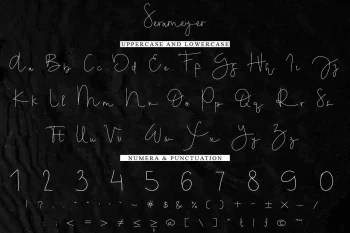 UPPERCASE AND LOWERCASE
Aa Bb Cc Dd Ee Ff Gg Hh Ii Jj
Kk Ll Mm Nn Oo Pp Qq Rr Ss
Tt Uu Vv Ww Xx Yy Zz
NUMERA & PUNCTUATION
1 2 3 4 5 6 7 8 9 0